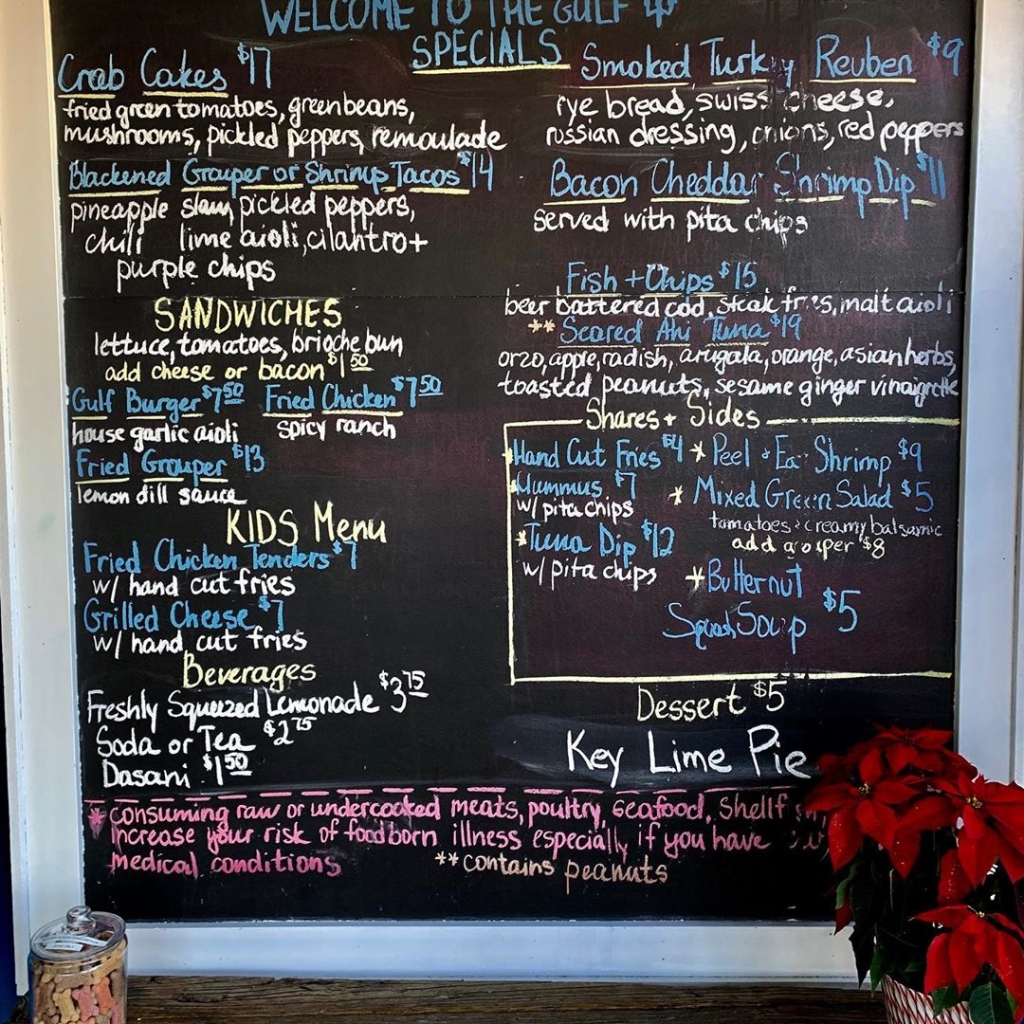 WELCOME TO THE GULF
SPECIALS
Crab Cakes $17
fried green tomatoes, greenbeans,
mushrooms, pickled peppers, remoulade
Blackened Grouper or Shrimp Tacos $14
pineapple slaw, pickled peppers,
chili lime aioli, cilantro +
purple chips
SANDWICHES
lettuce, tomatoes, brioche bun
add cheese or bacon $1.50
Gulf Burger $7.50 Fried Chicken $7.50
house garlic aioli spicy ranch
Fried Grouper $13
lemon dill sauce
KIDS Menu
Fried Chicken Tenders $7
w/ hand cut fries
Grilled Cheese $7
w/ hand cut fries
Beverages
Freshly Squeezed Lemonade $3.75
Soda or Tea $2.75
Dasani $1.50
Smoked Turkey Reuben $9
rye bread, swiss cheese,
russian dressing, onions, red peppers
Bacon Cheddar Shrimp Dip $11
served with pita chips
Fish + Chips $15
beer battered cod, steak fries, malt aioli
** Seared Ahi Tuna $19
orzo, apple, radish, arugala, orange, asian herbs,
toasted peanuts, sesame ginger vinaigrette
Shares + Sides
* Hand Cut Fries $4
* Hummus $7
w/ pita chips
* Tuna Dip $12
w/ pita chips
* Peel & Eat Shrimp $9
* Mixed Green Salad $5
tomatoes & creamy balsamic
add grouper $8
* Butternut
Squash Soup $5
Dessert $5
Key Lime Pie
* consuming raw or undercooked meats, poultry, seafood,
increase your risk of foodborn illness especially if you have
medical conditions
**contains peanuts